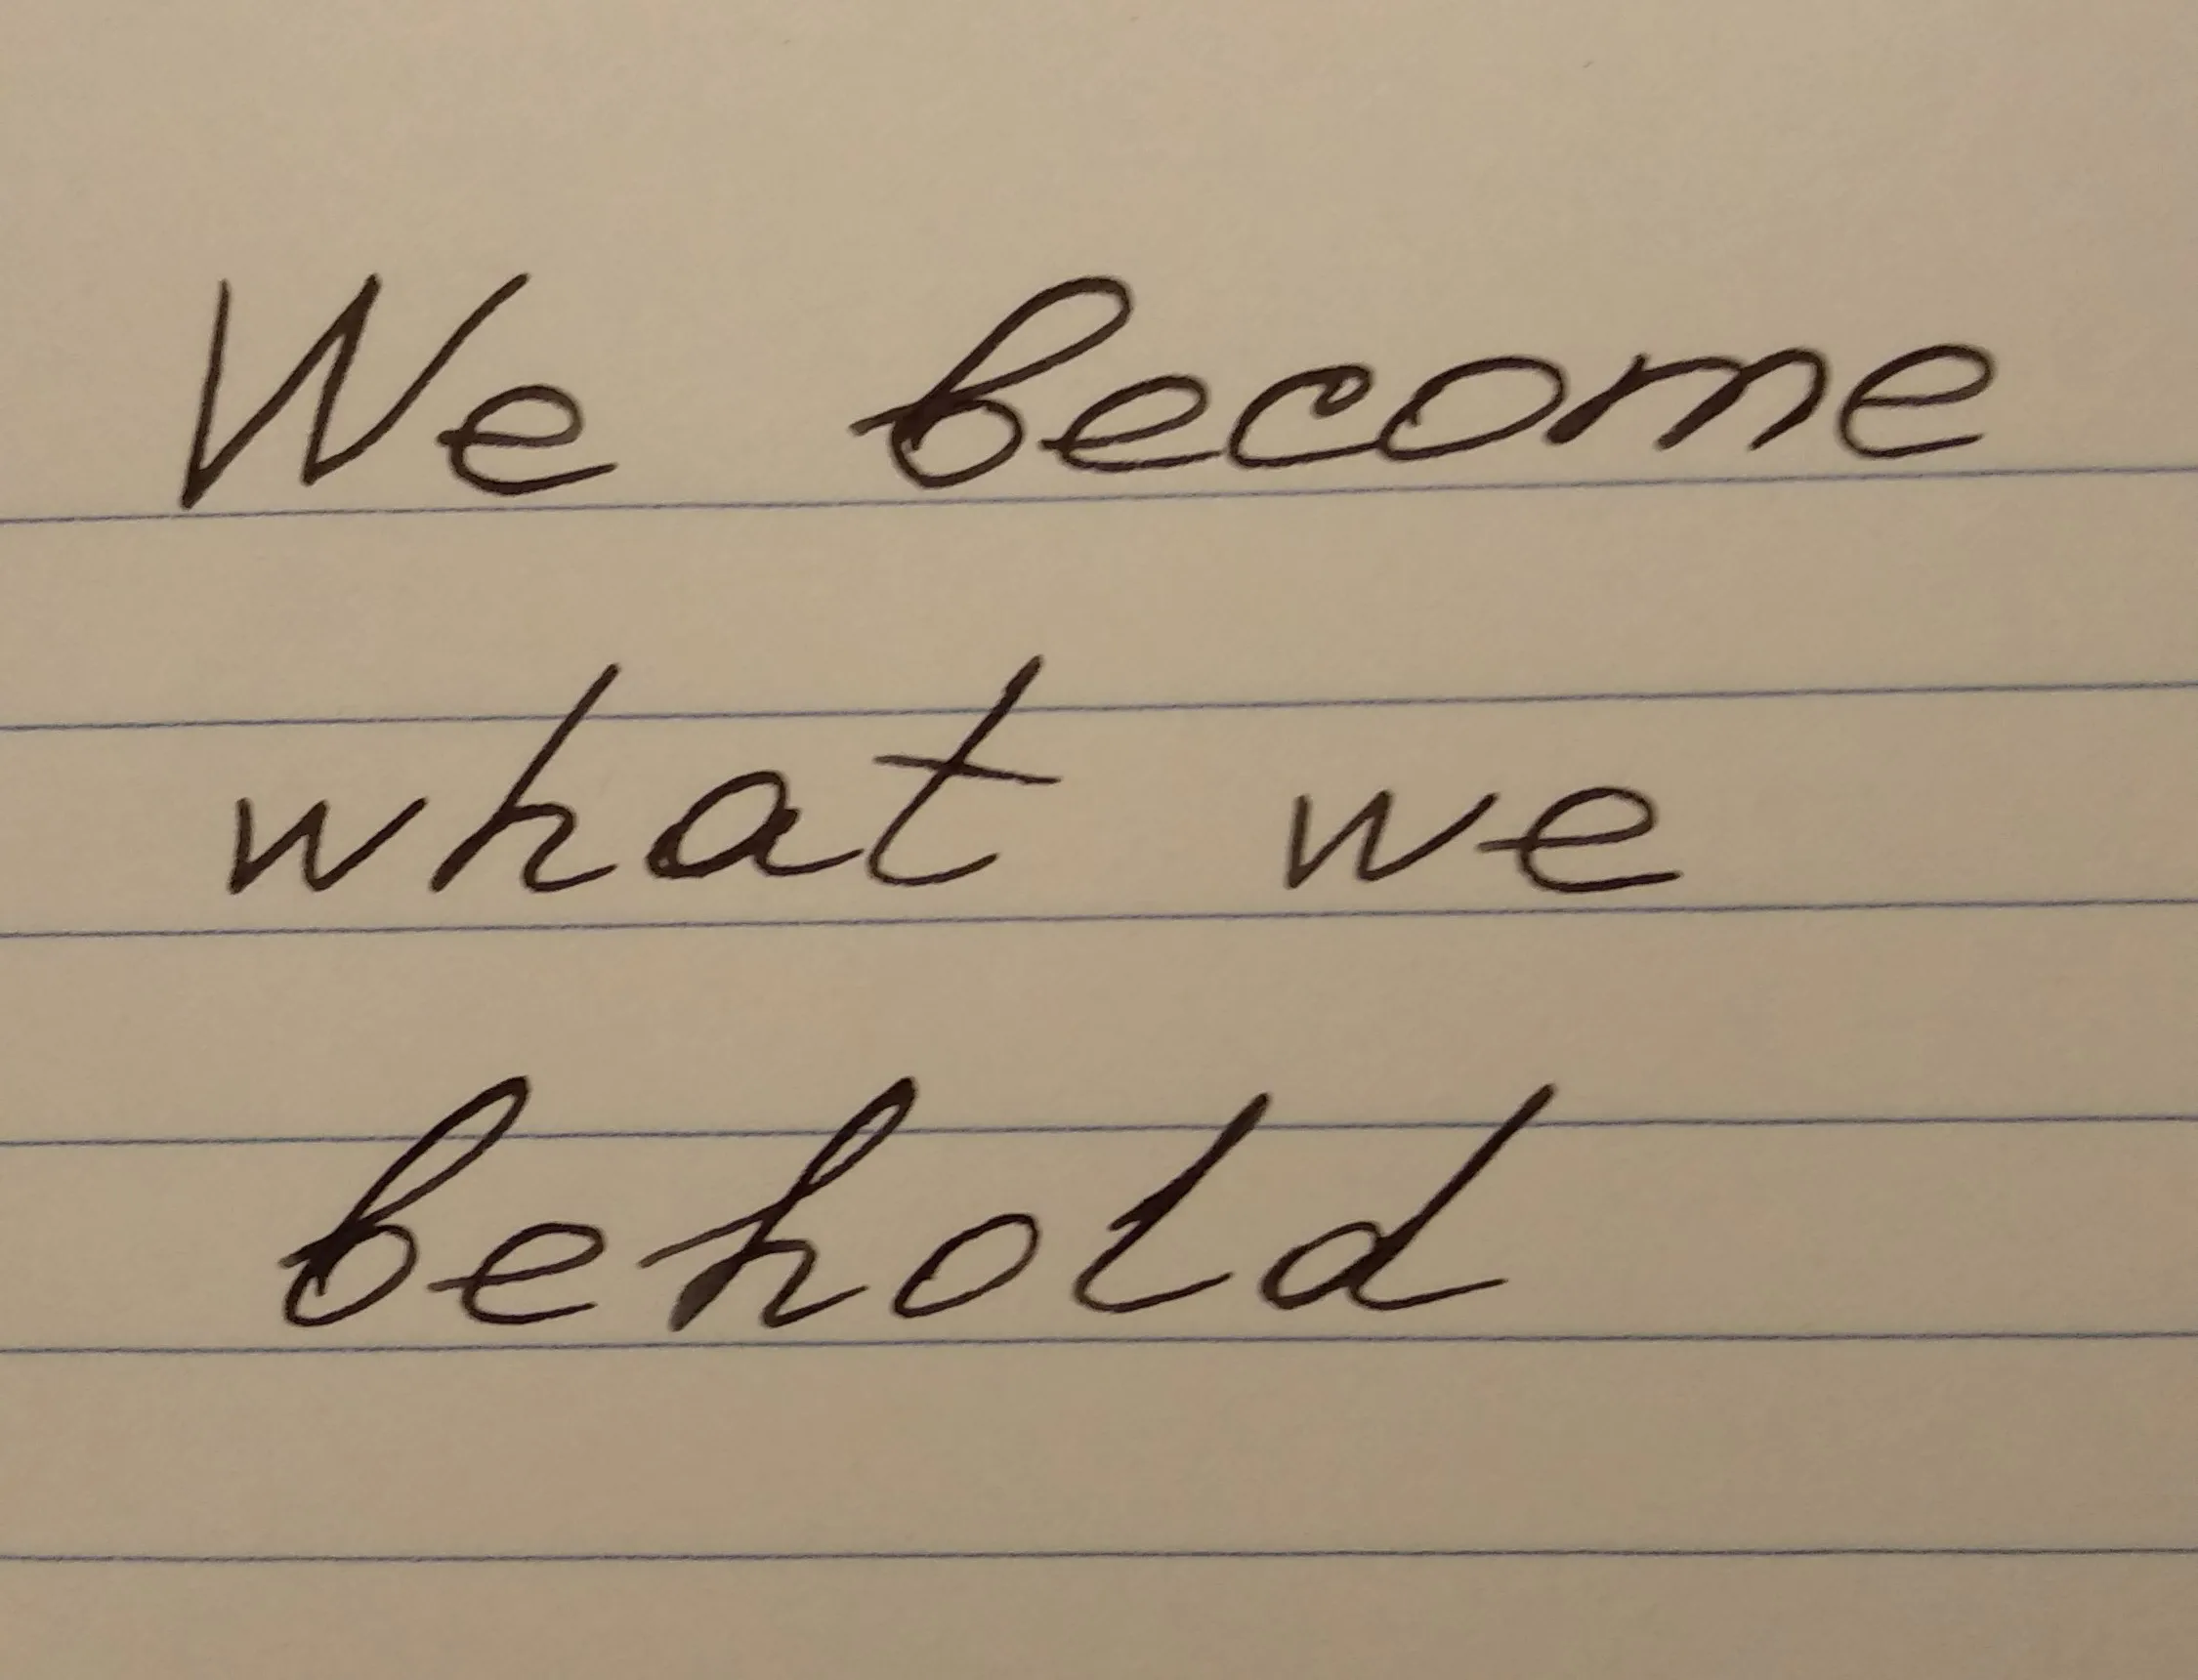 We become
what we
behold